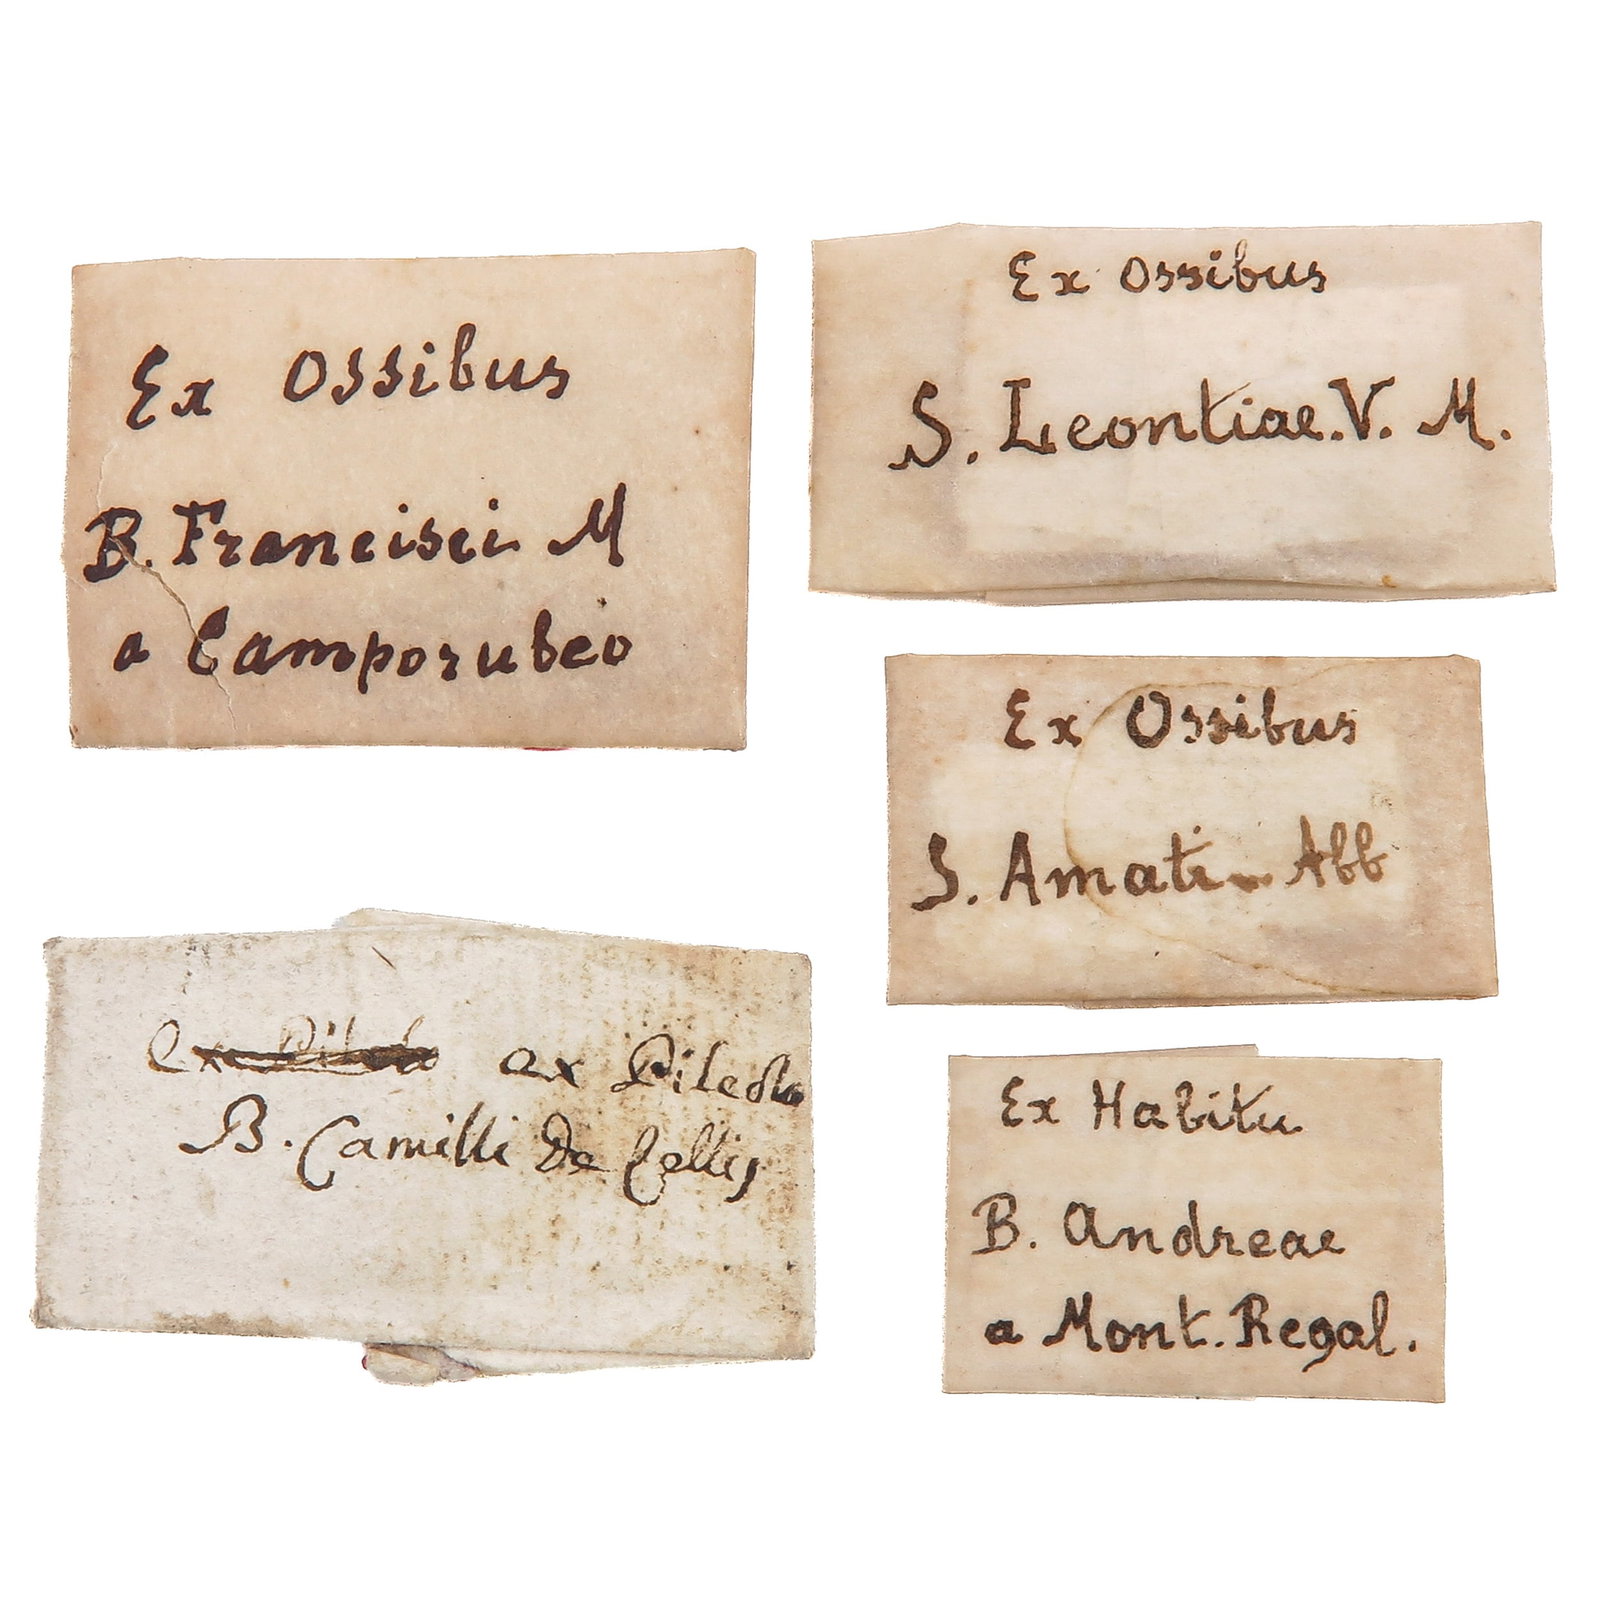 Ex Ossibus
B. Francisci M
a Camporubeo
Ex Ossibus
S. Leontiae. V. M.
Ex Ossibus
S. Amati Abb
ex Pileolo
B. Camilli De Lellis
Ex Habitu
B. Andreae
a Mont. Regal.